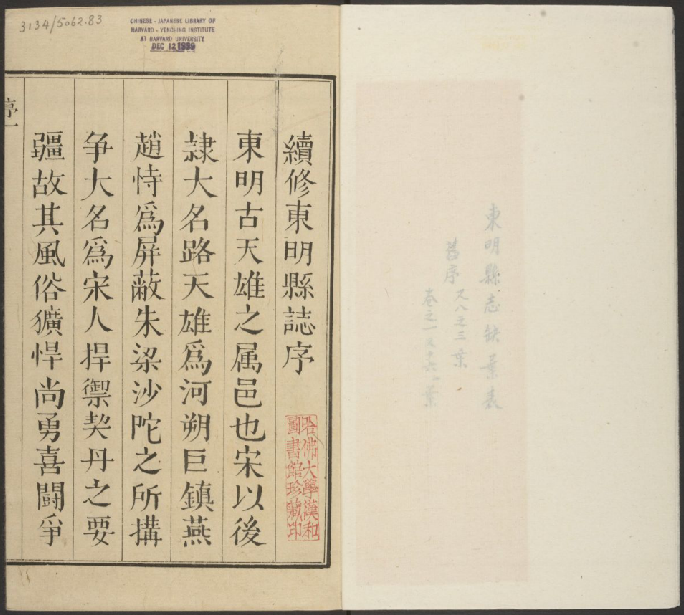 3134/5062.83
CHINESE - JAPANESE LIBRARY OF
HARVARD - YENCHING INSTITUTE
AT HARVARD UNIVERSITY
DEC 12 1939
續修東明縣誌序
東明古天雄之属邑也宋以後
隷大名路天雄爲河朔巨鎮燕
趙恃爲屏蔽朱梁沙陀之所搆
争大名爲宋人捍禦契丹之要
疆故其風俗獷悍尚勇喜闘爭
序一
哈佛大學漢和
圖書館珍藏印
東明縣志缺葉表